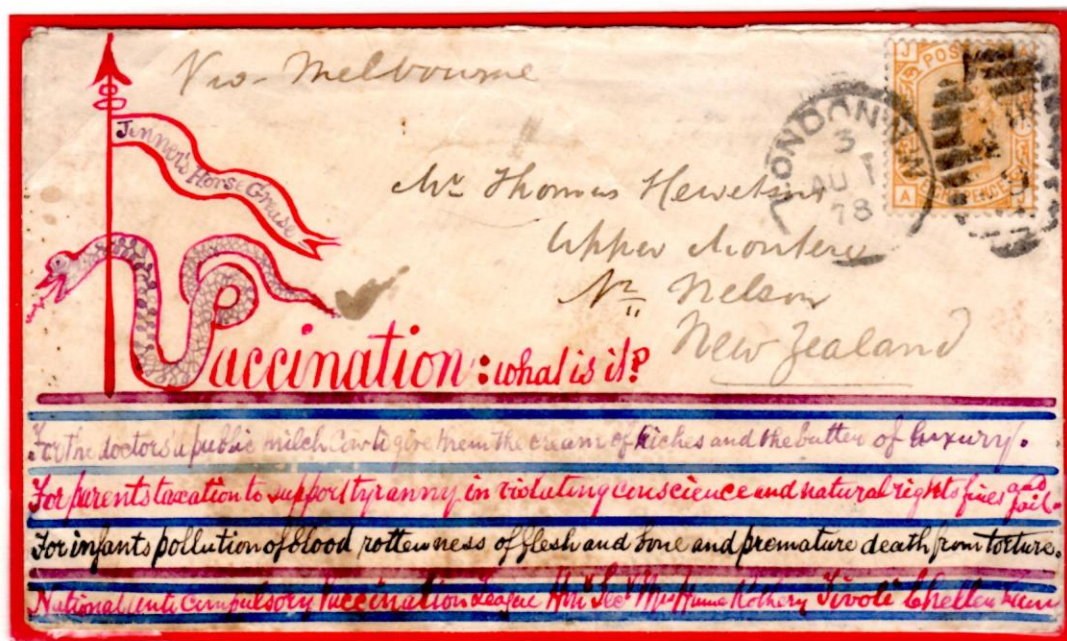 Via Melbourne
Jenner's Horse Grease
Mr Thomas
Upper
Nr Nelson
New Zealand
LONDON·N.W
3
AU 1
78
POS
J A
A
PENCE
Vaccination: what is it?
For the doctors a public milch Cow to give them the cream of Riches and the butter of luxury.
For parents taxation to support tyranny in violating conscience and natural rights fines and jail.
For infants pollution of blood rottenness of flesh and bone and premature death from torture.
National Anti Compulsory Vaccination League Hon Sec Mrs Hume Rothery Tivoli Cheltenham